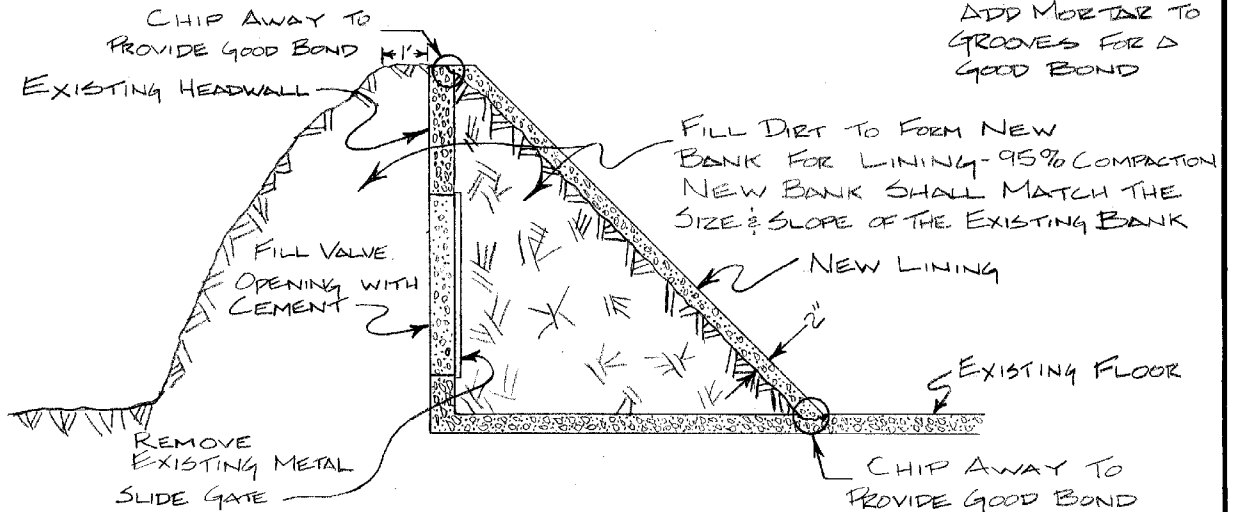 CHIP AWAY TO
PROVIDE GOOD BOND
1'
EXISTING HEADWALL
ADD MORTAR TO
GROOVES FOR A
GOOD BOND
FILL DIRT TO FORM NEW
BANK FOR LINING - 95% COMPACTION
NEW BANK SHALL MATCH THE
SIZE & SLOPE OF THE EXISTING BANK
NEW LINING
2"
FILL VALVE
OPENING WITH
CEMENT
EXISTING FLOOR
REMOVE
EXISTING METAL
SLIDE GATE
CHIP AWAY TO
PROVIDE GOOD BOND